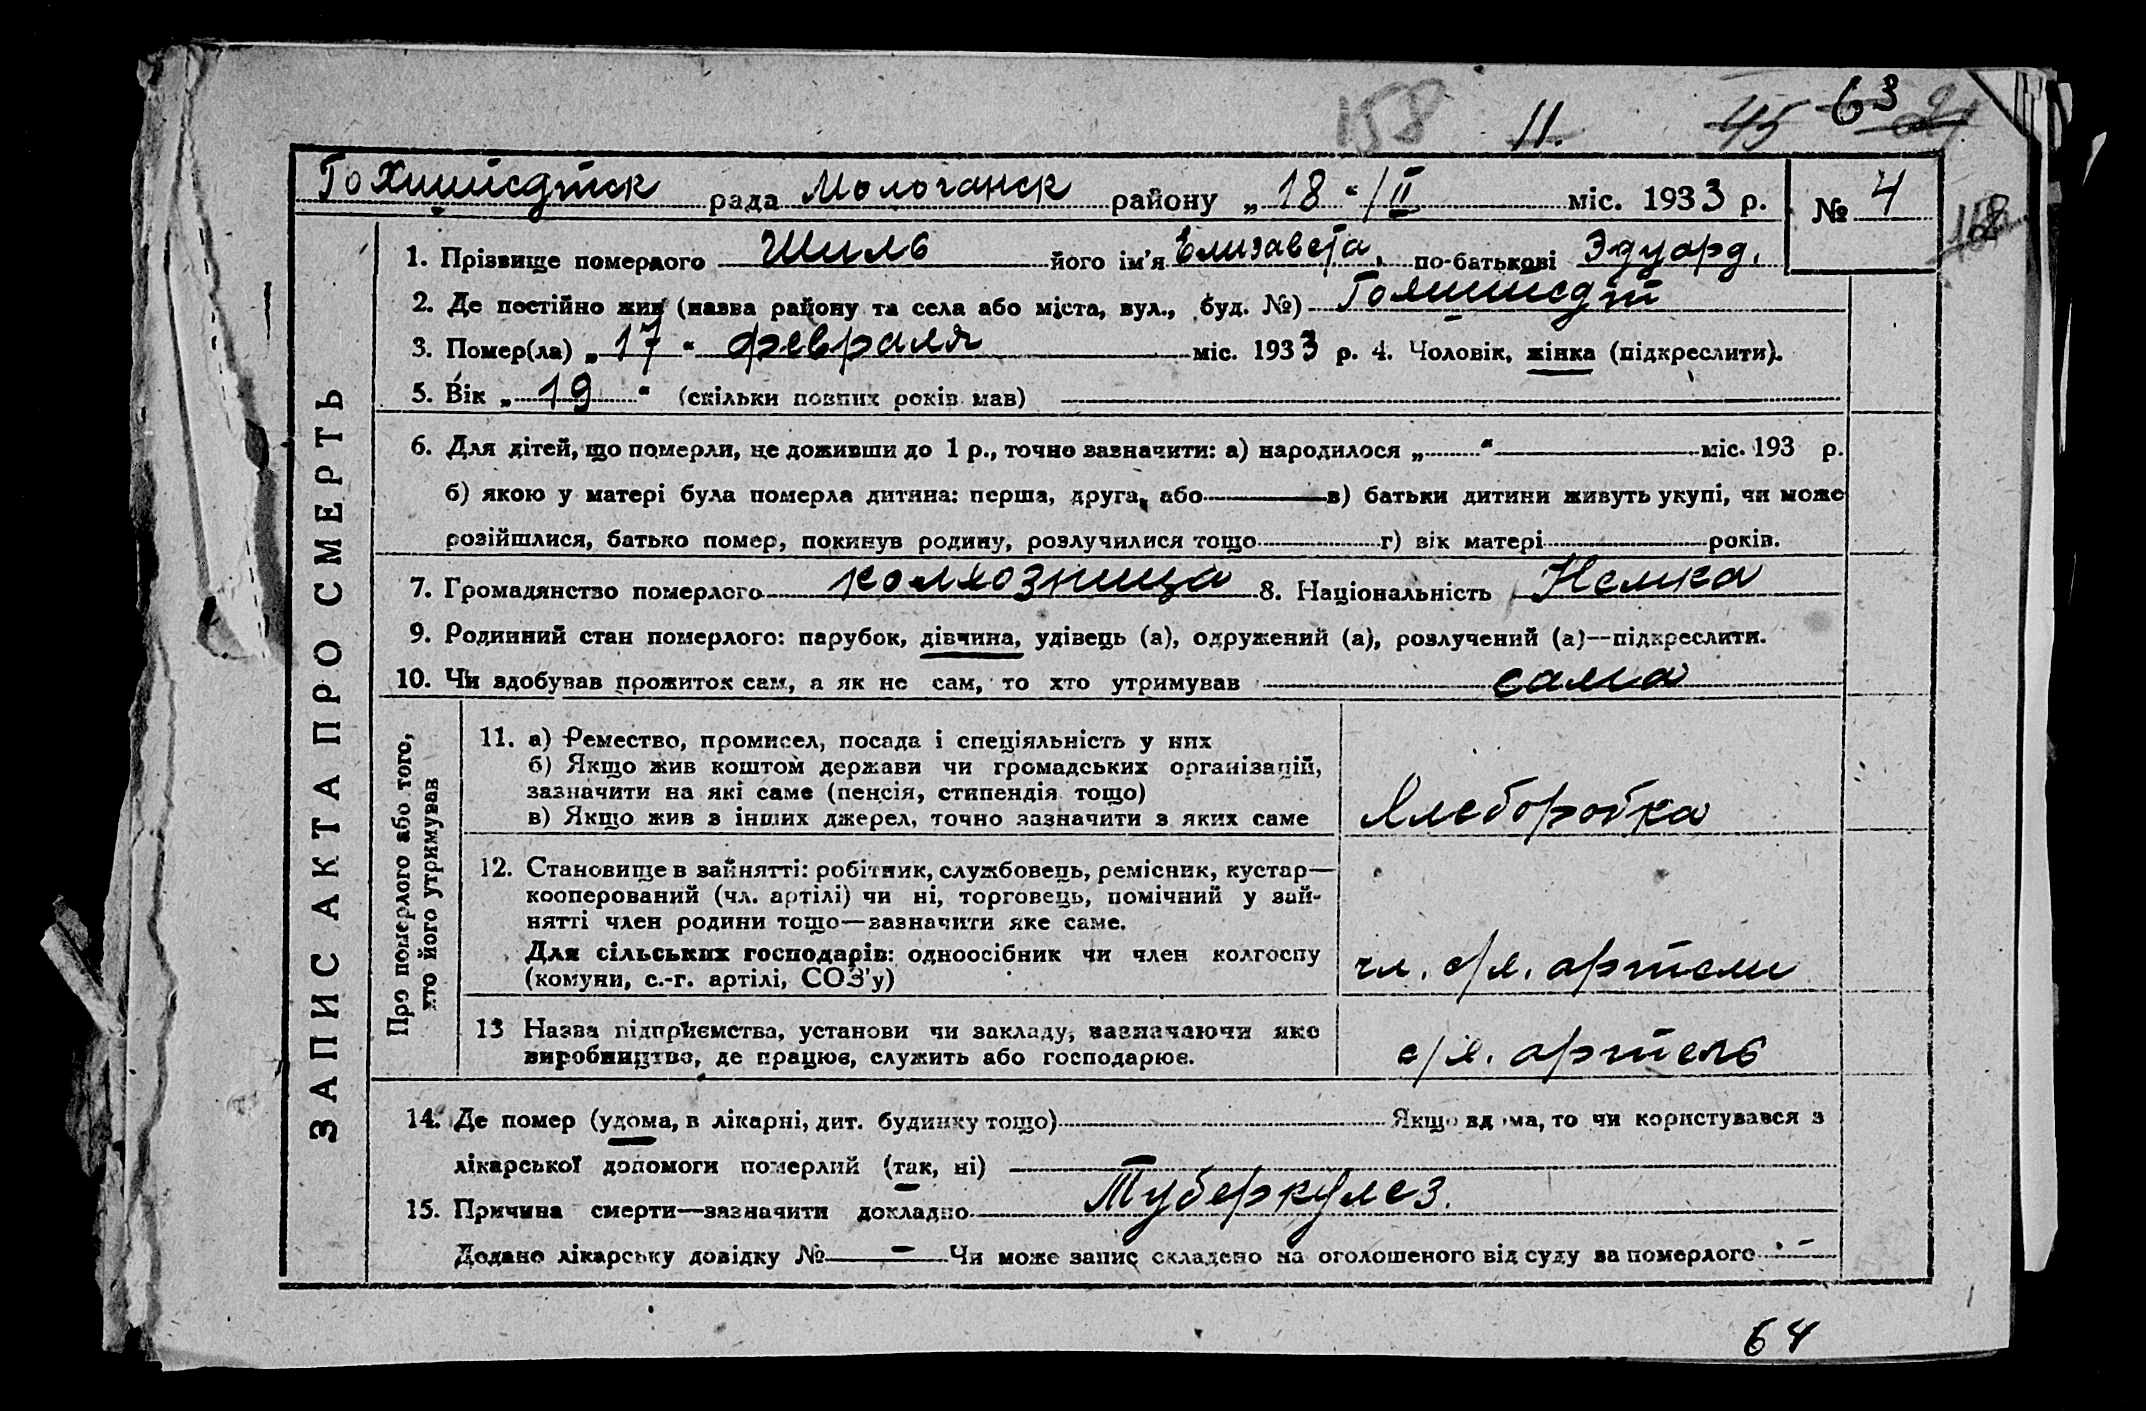 158 11. 45 63 21
Гохштедтск рада Молочанск району „18“/II міс. 1933 р. № 4
118
1. Прізвище померлого Шиль його ім'я Елизавета, по-батькові Эдуард.
2. Де постійно жив (назва району та села або міста, вул., буд. №) Гохштедт
3. Помер(ла) „17“ февраля міс. 1933 р. 4. Чоловік, жінка (підкреслити).
5. Вік „19“ (скільки повних років мав)
6. Для дітей, що померли, не доживши до 1 р., точно зазначити: а) народилося „ “ міс. 193 р.
б) якою у матері була померла дитина: перша, друга, або в) батьки дитини живуть укупі, чи може
розійшлися, батько помер, покинув родину, розлучилися тощо г) вік матері років.
7. Громадянство померлого колхозница 8. Національність Немка
9. Родинний стан померлого: парубок, дівчина, удівець (а), одружений (а), розлучений (а)—підкреслити.
10. Чи здобував прожиток сам, а як не сам, то хто утримував сама
ЗАПИС АКТА ПРО СМЕРТЬ
Про померлого або того,
хто його утримував
11. а) Ремество, промисел, посада і спеціяльність у них
б) Якщо жив коштом держави чи громадських організацій,
зазначити на які саме (пенсія, стипендія тощо)
в) Якщо жив з інших джерел, точно зазначити з яких саме
Хлеборобка
12. Становище в зайнятті: робітник, службовець, ремісник, кустар—
кооперований (чл. артілі) чи ні, торговець, помічний у зай-
нятті член родини тощо—зазначити яке саме.
Для сільських господарів: одноосібник чи член колгоспу
(комуни, с.-г. артілі, СОЗ'у)
чл. с/х. артели
13 Назва підприємства, установи чи закладу, зазначаючи яке
виробництво, де працює, служить або господарює.
с/х. артель
14. Де помер (удома, в лікарні, дит. будинку тощо) Якщо вдома, то чи користувався з
лікарської допомоги померлий (так, ні)
15. Причина смерти—зазначити докладно Туберкулез.
Додано лікарську довідку № — Чи може запис складено на оголошеного від суду за померлого —
64